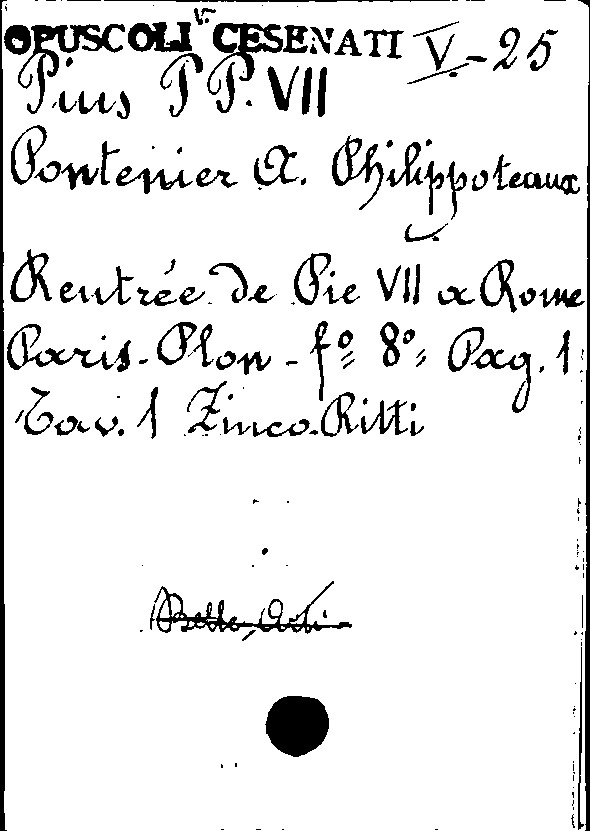 OPUSCOLI CESENATI V.-25
Pius PP. VII
Pontenier A. Philippoteaux
Rentrée de Pie VII a Rome
Paris-Plon-fº 8º Pag. 1
Tav. 1 Zinco.Ritti
Belle Arti